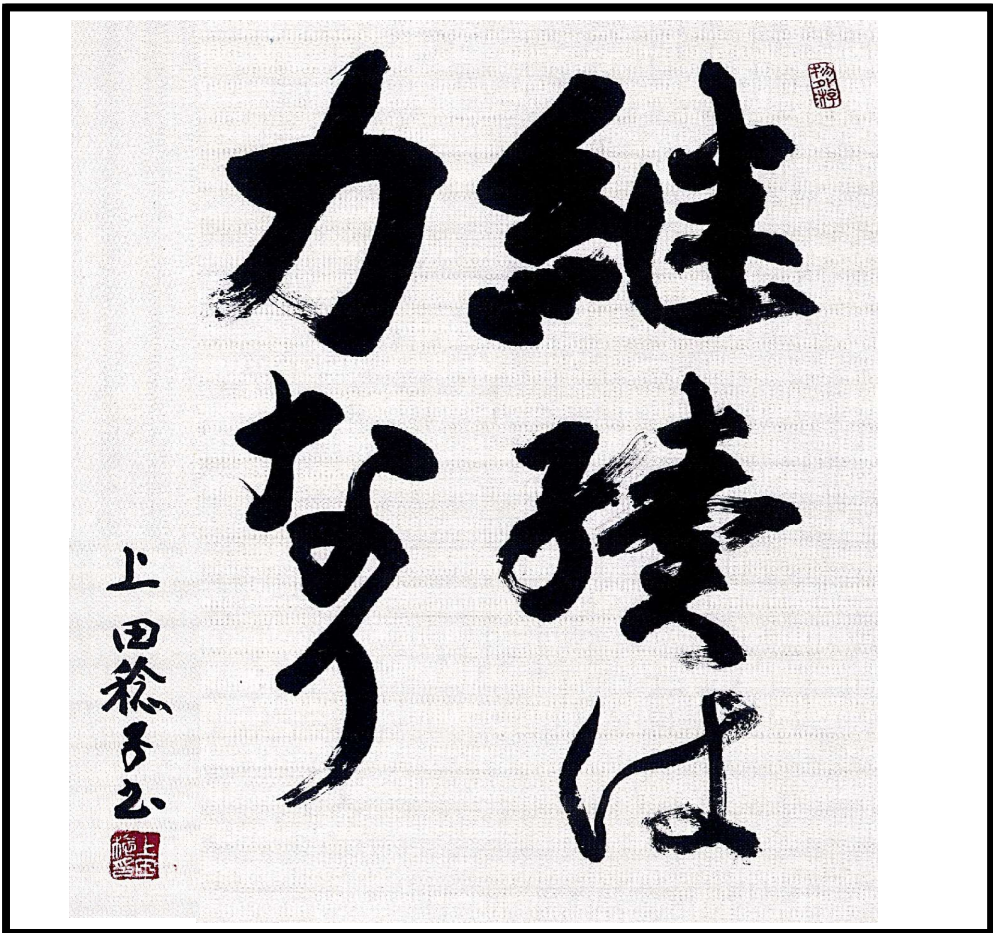 継続は
力なり
上田稔子書